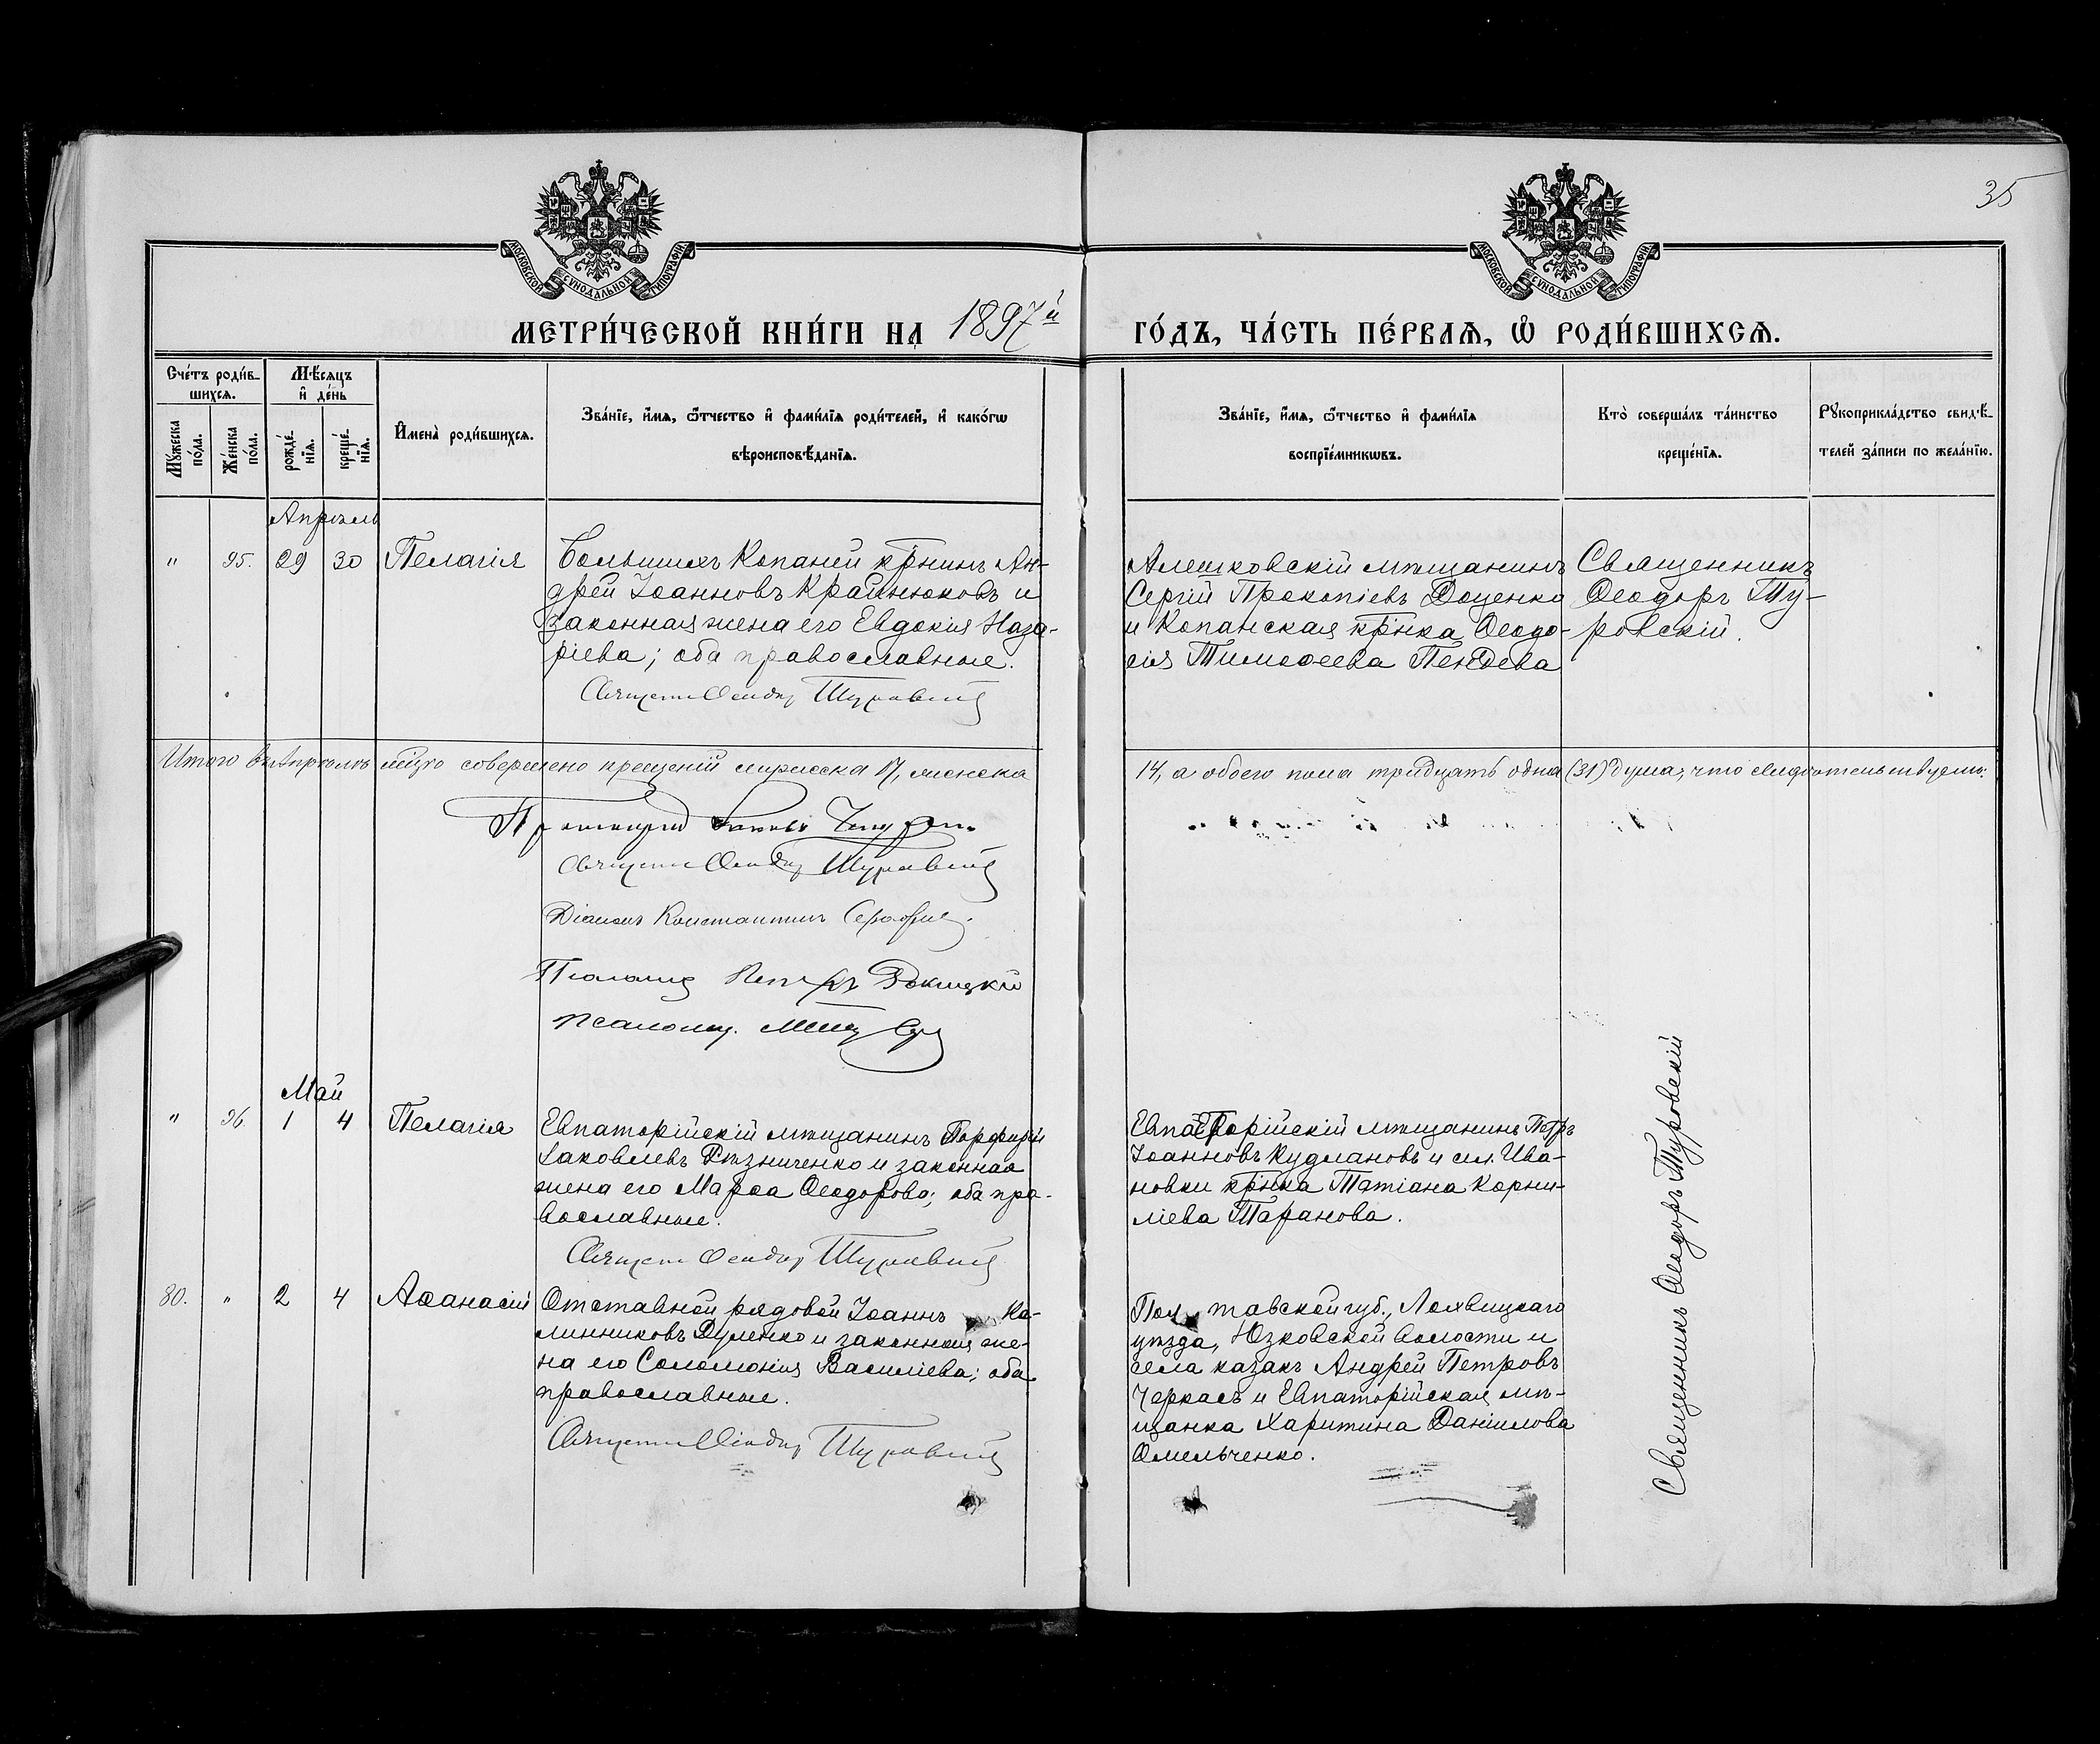 35
МОСКОВСКОЙ СѴНОДАЛЬНОЙ ТИПОГРАФІИ
МОСКОВСКОЙ СѴНОДАЛЬНОЙ ТИПОГРАФІИ
МЕТРИ́ЧЕСКОЙ КНИ́ГИ НА 1897й ГО́ДЪ, ЧА́СТЬ ПЕ́РВАѦ, Ѽ РОДИ́ВШИХСѦ.
Сче́тъ роди́в-
шихсѧ.
Мꙋ́жеска по́ла.
Же́нска по́ла.
Мѣ́сѧцъ
и҆ де́нь
рожде́-
нїѧ.
креще́-
нїѧ.
И҆мена̀ роди́вшихсѧ.
Зва́нїе, и҆́мѧ, ѻ҆́тчество и҆ фами́лїѧ роди́телей, и҆ како́гѡ
вѣроисповѣ́данїѧ.
Зва́нїе, и҆́мѧ, ѻ҆́тчество и҆ фами́лїѧ
воспрїе́мникѡвъ.
Кто̀ соверша́лъ та́инство
креще́нїѧ.
Рꙋкоприкла́дство свидѣ́-
телей за́писи по жела́нїю.
Апрѣль
" 95. 29 30 Пелагія
Большихъ Копаней кр̄нинъ Ан-
дрей Іоанновъ Крайнюковъ и
законная жена его Евдокія Наза-
ріева; оба православные.
Священн Ѳеодор Туровскій
Алешковскій мѣщанинъ
Сергій Прокопіевъ Доценко
и Копанская кр̄нка Ѳеодо-
сія Тимоѳеева Пендева
Священникъ
Ѳеодоръ Ту-
ровскій.
Итого въ Апрѣлѣ мѣцѣ совершено крещеній мужеска 17, женска 14, а обоего пола тридцать одна (31) душа, что свидѣтельствуемъ:
Священн Ѳеодор Туровскій
Діаконъ Константинъ
Псаломщ Петръ
Псаломщ.
Май
" 96 1 4 Пелагія
Евпаторійскій мѣщанинъ Порфирій
Іаковлевъ Рѣзниченко и законная
жена его Марѳа Ѳеодорова; оба пра-
вославные.
Священн Ѳеодор Туровскій
Евпаторійскій мѣщанинъ Петръ
Іоанновъ Кудлановъ и сел. Ива-
новки кр̄нка Татіана Корни-
ліева Таранова.
80. " 2 4 Аѳанасій
Отставной рядовой Іоаннъ Ка-
линниковъ Дуленко и законная же-
на его Соломонія Василіева; оба
православные.
Священн Ѳеодор Туровскій
Полтавской губ., Лохвицкаго
уѣзда, Юзковской волости и
села казакъ Андрей Петровъ
Черкасъ и Евпаторійская мѣ-
щанка Харитина Даніилова
Омельченко.
Священникъ Ѳеодоръ Туровскій